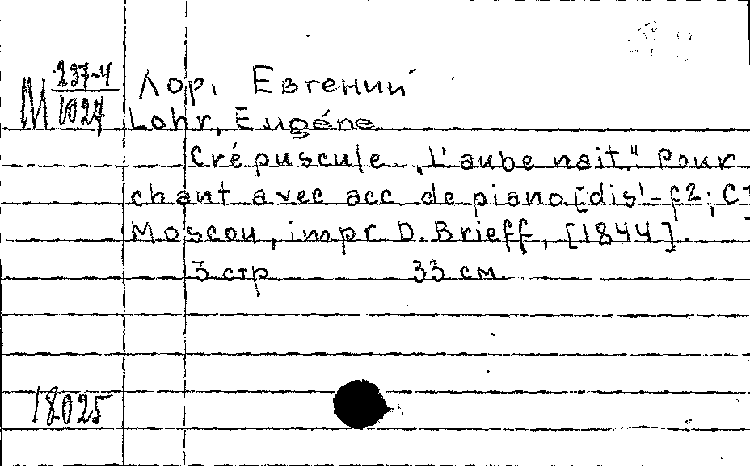 М 237-4
1027
Лор, Евгений
Lohr, Eugéne
Crépuscule „L'aube nait." Pour
chant avec acc de piano [dis'-f2;
Moscou, impr D. Brieff, [1844]
3 стр 33 см.
18025